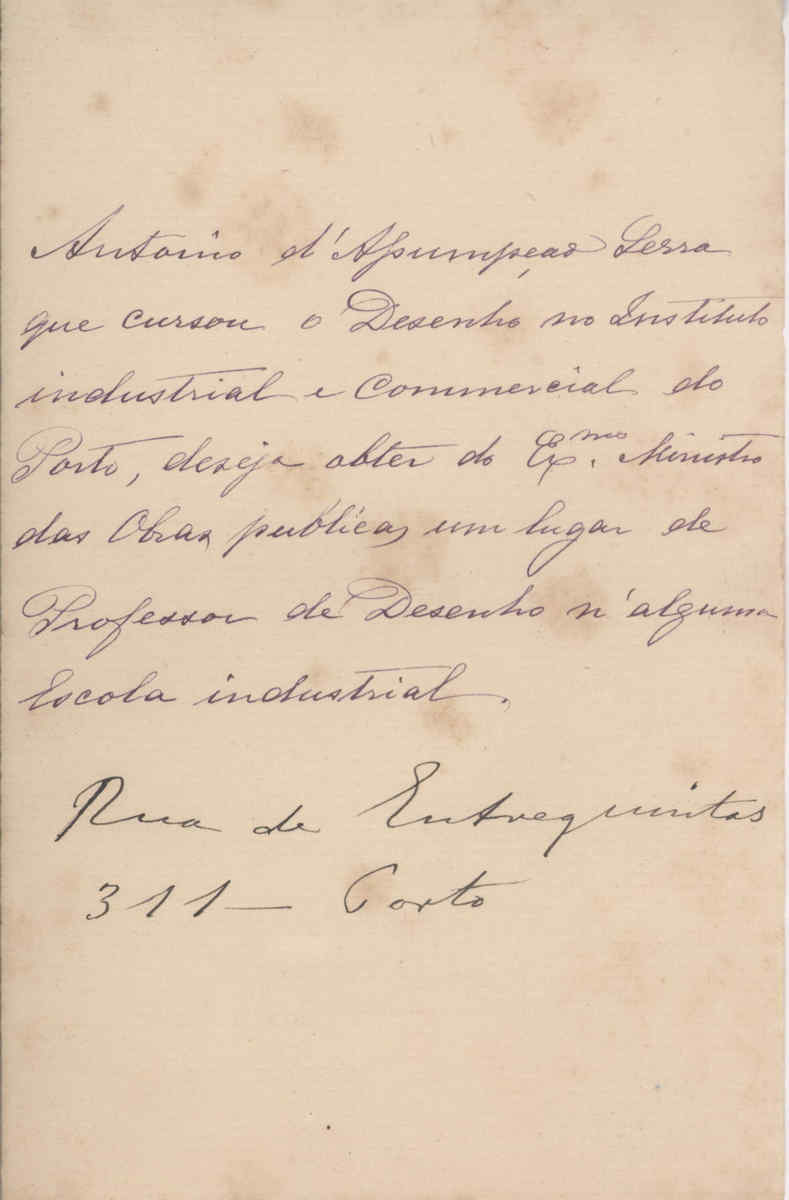 Antonio d'Assumpção Serra
que cursou o Desenho no Instituto
industrial e Commercial do
Porto, deseja obter do Ex.mo Ministro
das Obras publicas um lugar de
Professor de Desenho n'alguma
Escola industrial.
Rua de Entrequintas
311 — Porto